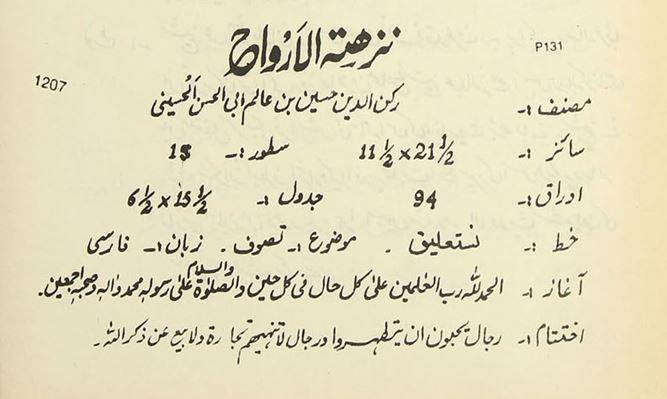 نزهته الارواح
P131
1207
مصنف :- رکن الدین حسین بن عالم ابی الحسن الحسینی
سائز :- 11 1/2 x 21 1/2 سطور :- 15
اوراق :- 94 جدول :- 6 1/2 x 15 1/2
خط :- نستعلیق . موضوع :- تصوف . زبان :- فارسی
آغاز :- الحمد للہ رب العٰلمین علیٰ کل حال فی کل حین والصلوٰۃ والسلام علیٰ رسولہ محمد والہ وصحبہ اجمعین .
اختتام :- رجال یحبون ان یتطہروا ورجال لا تنہیھم تجارۃ ولا بیع عن ذکر اللہ .